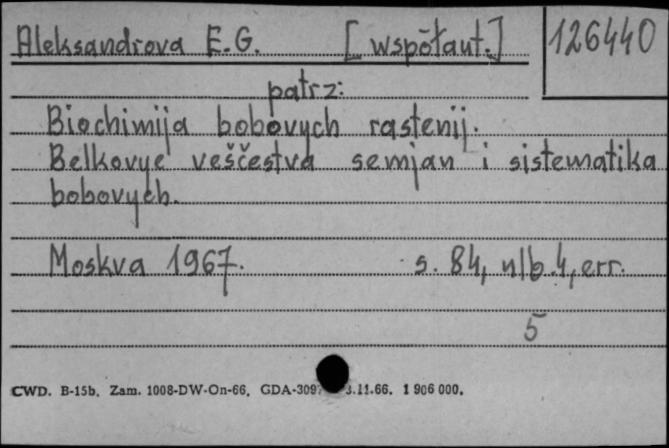 Aleksandrova E.G. [współaut.] 126440
patrz:
Biochimija bobovych rastenij.
Belkovye veščestva semjan i sistematika
bobovych.
Moskva 1967. s. 84, nlb.4, err.
5
CWD. B-15b. Zam. 1008-DW-On-66. GDA-309 3.11.66. 1 906 000.